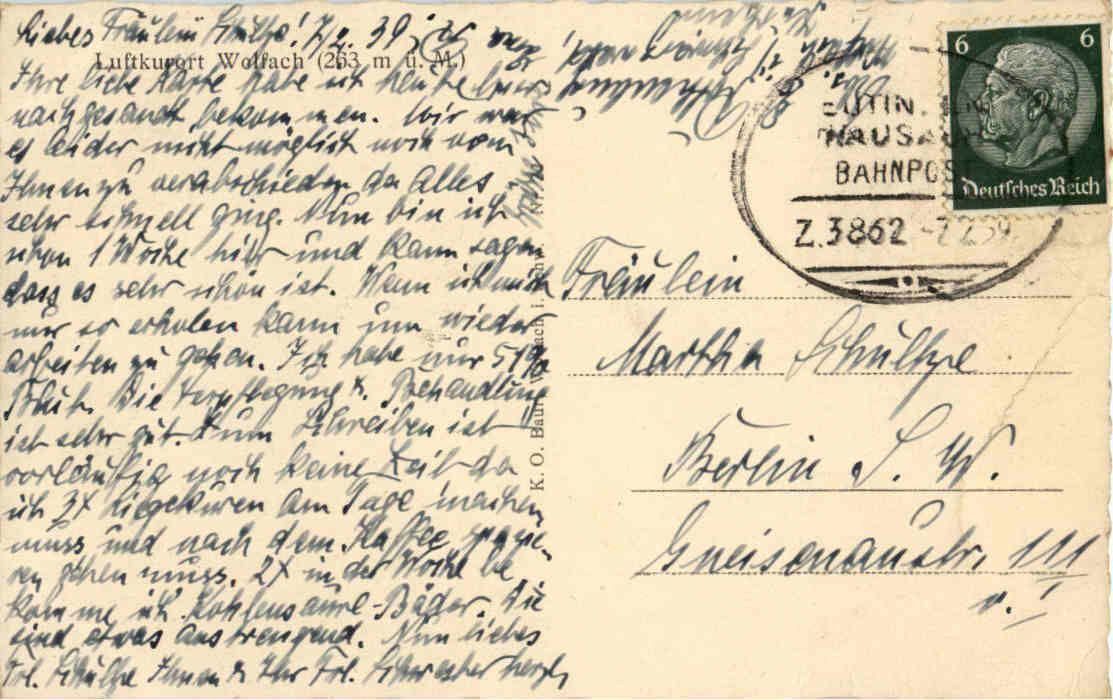 Liebes Fräulein Schultze! 7/2. 39.
Luftkurort Wolfach (263 m ü. M.)
Ihre liebe Karte habe ich heute hier
nachgesandt bekommen. Wir war
es leider nicht möglich mich von
Ihnen zu verabschieden da alles
sehr schnell ging. Nun bin ich
schon 1 Woche hier und kann sagen
dass es sehr schön ist. Wenn ich mich
nur so erholen kann um wieder
arbeiten zu gehen. Ich habe nur 51%
Blut. Die Verpflegung u. Behandlung
ist sehr gut. Zum Schreiben ist
vorläufig noch keine Zeit da
ich 3x Liegekuren am Tage machen
muss und nach dem Kaffee spazie-
ren gehen muss. 2x in der Woche be
komme ich Kohlensäure-Bäder. Die
sind etwas anstrengend. Nun liebes
Frl. Schultze Ihnen u. Ihr Frl. Schwester herzl.
K. O. Baur, Wolfach i.
6 6
Deutsches Reich
HAUSACH
BAHNPOST
Z. 3862 -7 2 39
Fräulein
Martha Schultze
Berlin S. W.
Gneisenaustr. 111
v. I